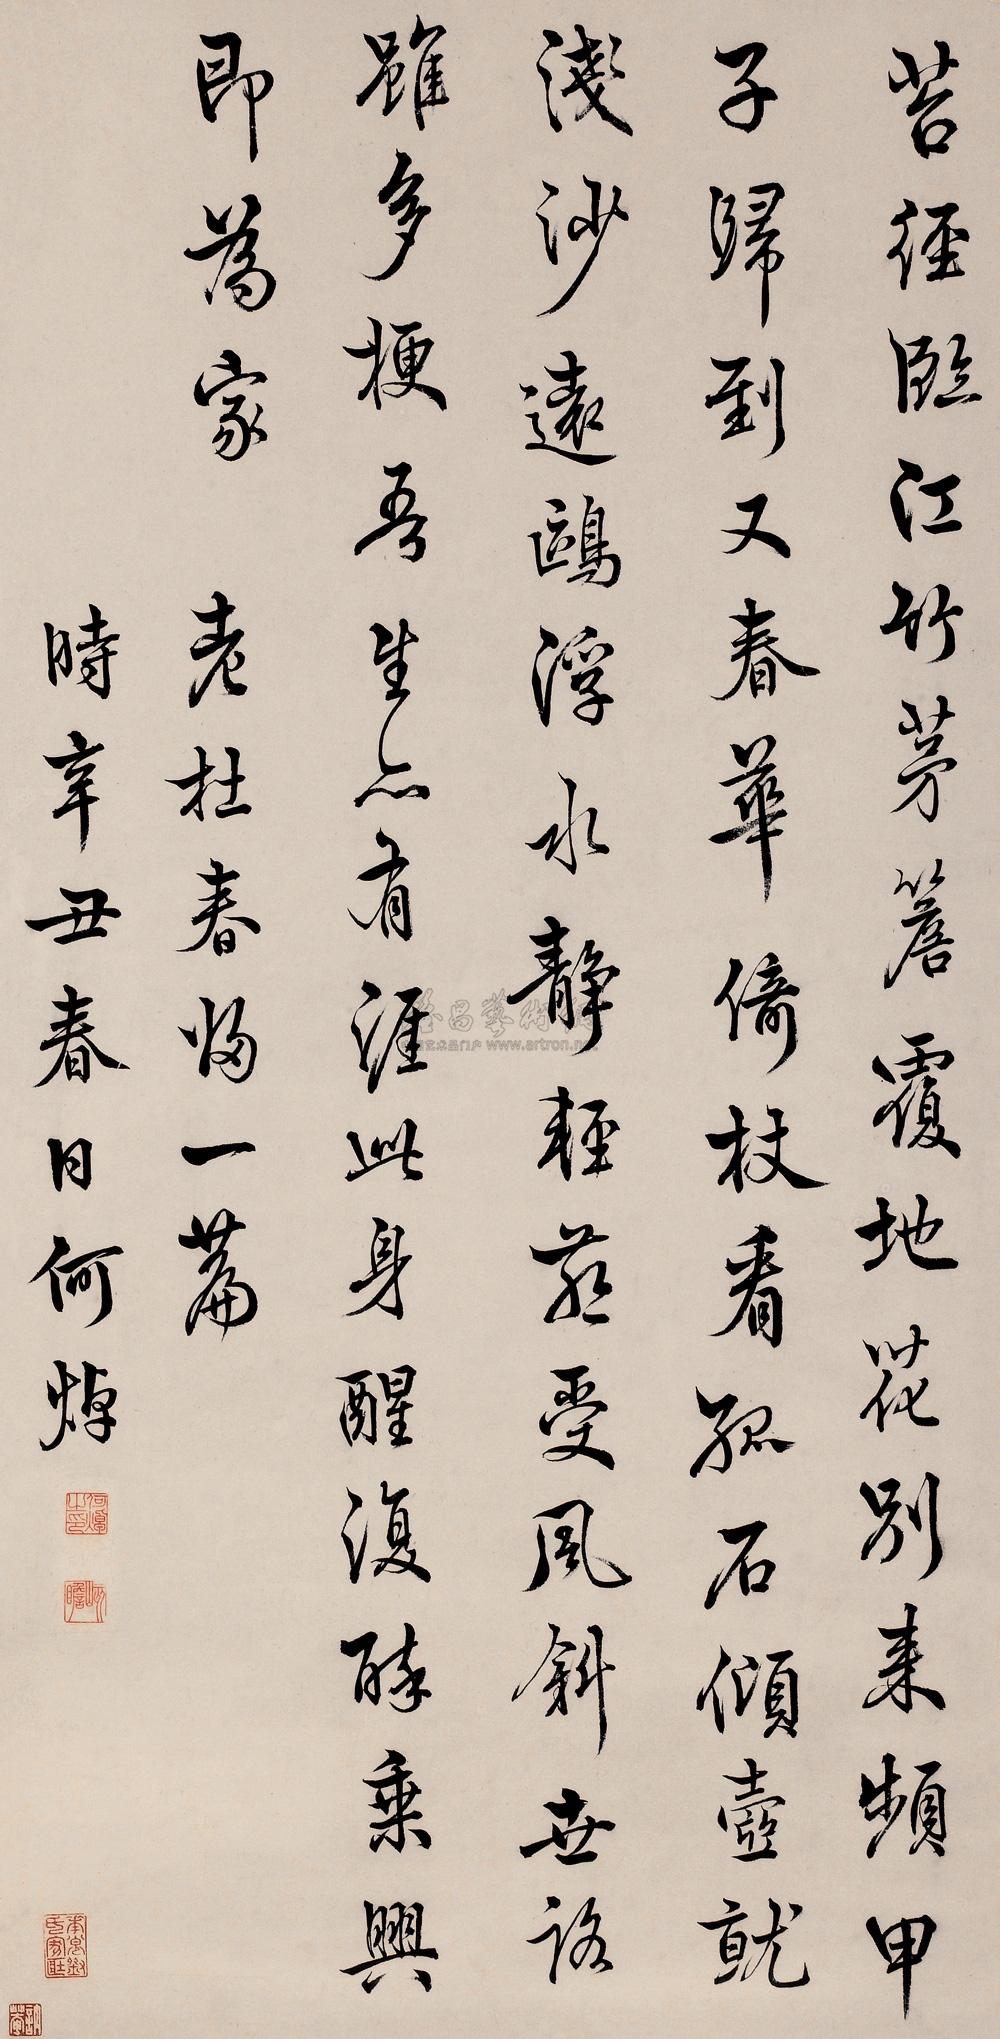 苔徑臨江竹茅簷覆地花別來頻甲
子歸到又春華倚杖看孤石傾壺就
淺沙遠鷗浮水靜輕燕受風斜世路
雖多梗吾生亦有涯此身醒復醉乘興
即為家
老杜春歸一篇
時辛丑春日何焯
何焯之印
屺瞻
www.artron.net